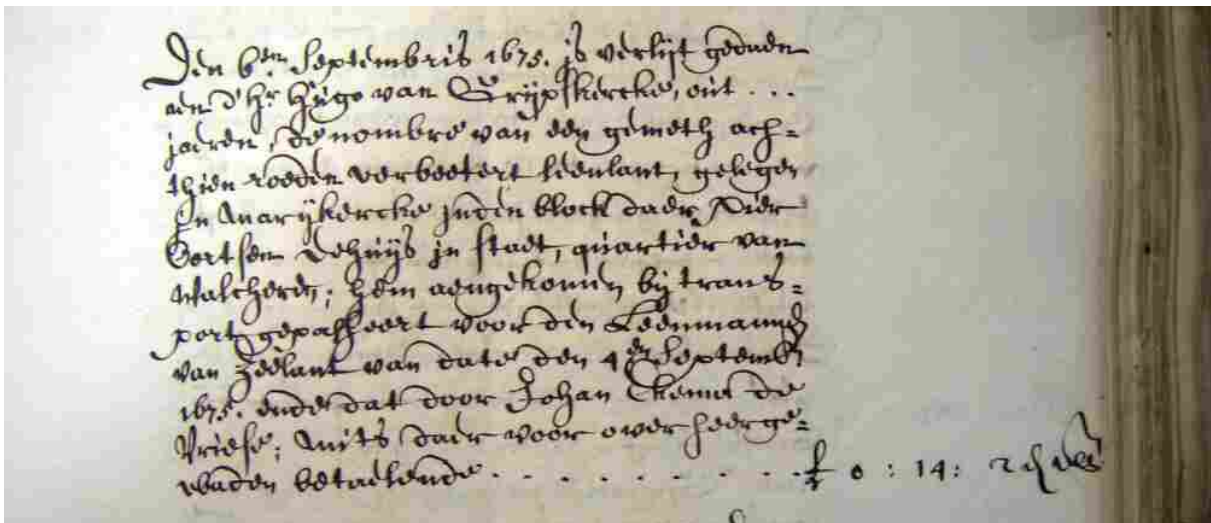 Den 6en Septembris 1675. is verlijt gedaen
aen d'hr Hugo van Grijpskercke, out ...
jaeren, de nombre van een gemeth ach=
thien roeden verbeetert leenlant, gelegen
in Marijkercke inden block daer Pier
Gortsen dehuijs in stadt, quartier van
Walcheren; hem aengekomen bij trans=
port, gepasseert voor den Leenmannen
van Zeelant van date den 4en Septembr
1675. ende dat door Johan de
Vriese; mits daer voor over heerge=
waden betaelende . . . . . . . . . .
£ 0 : 14 : 2